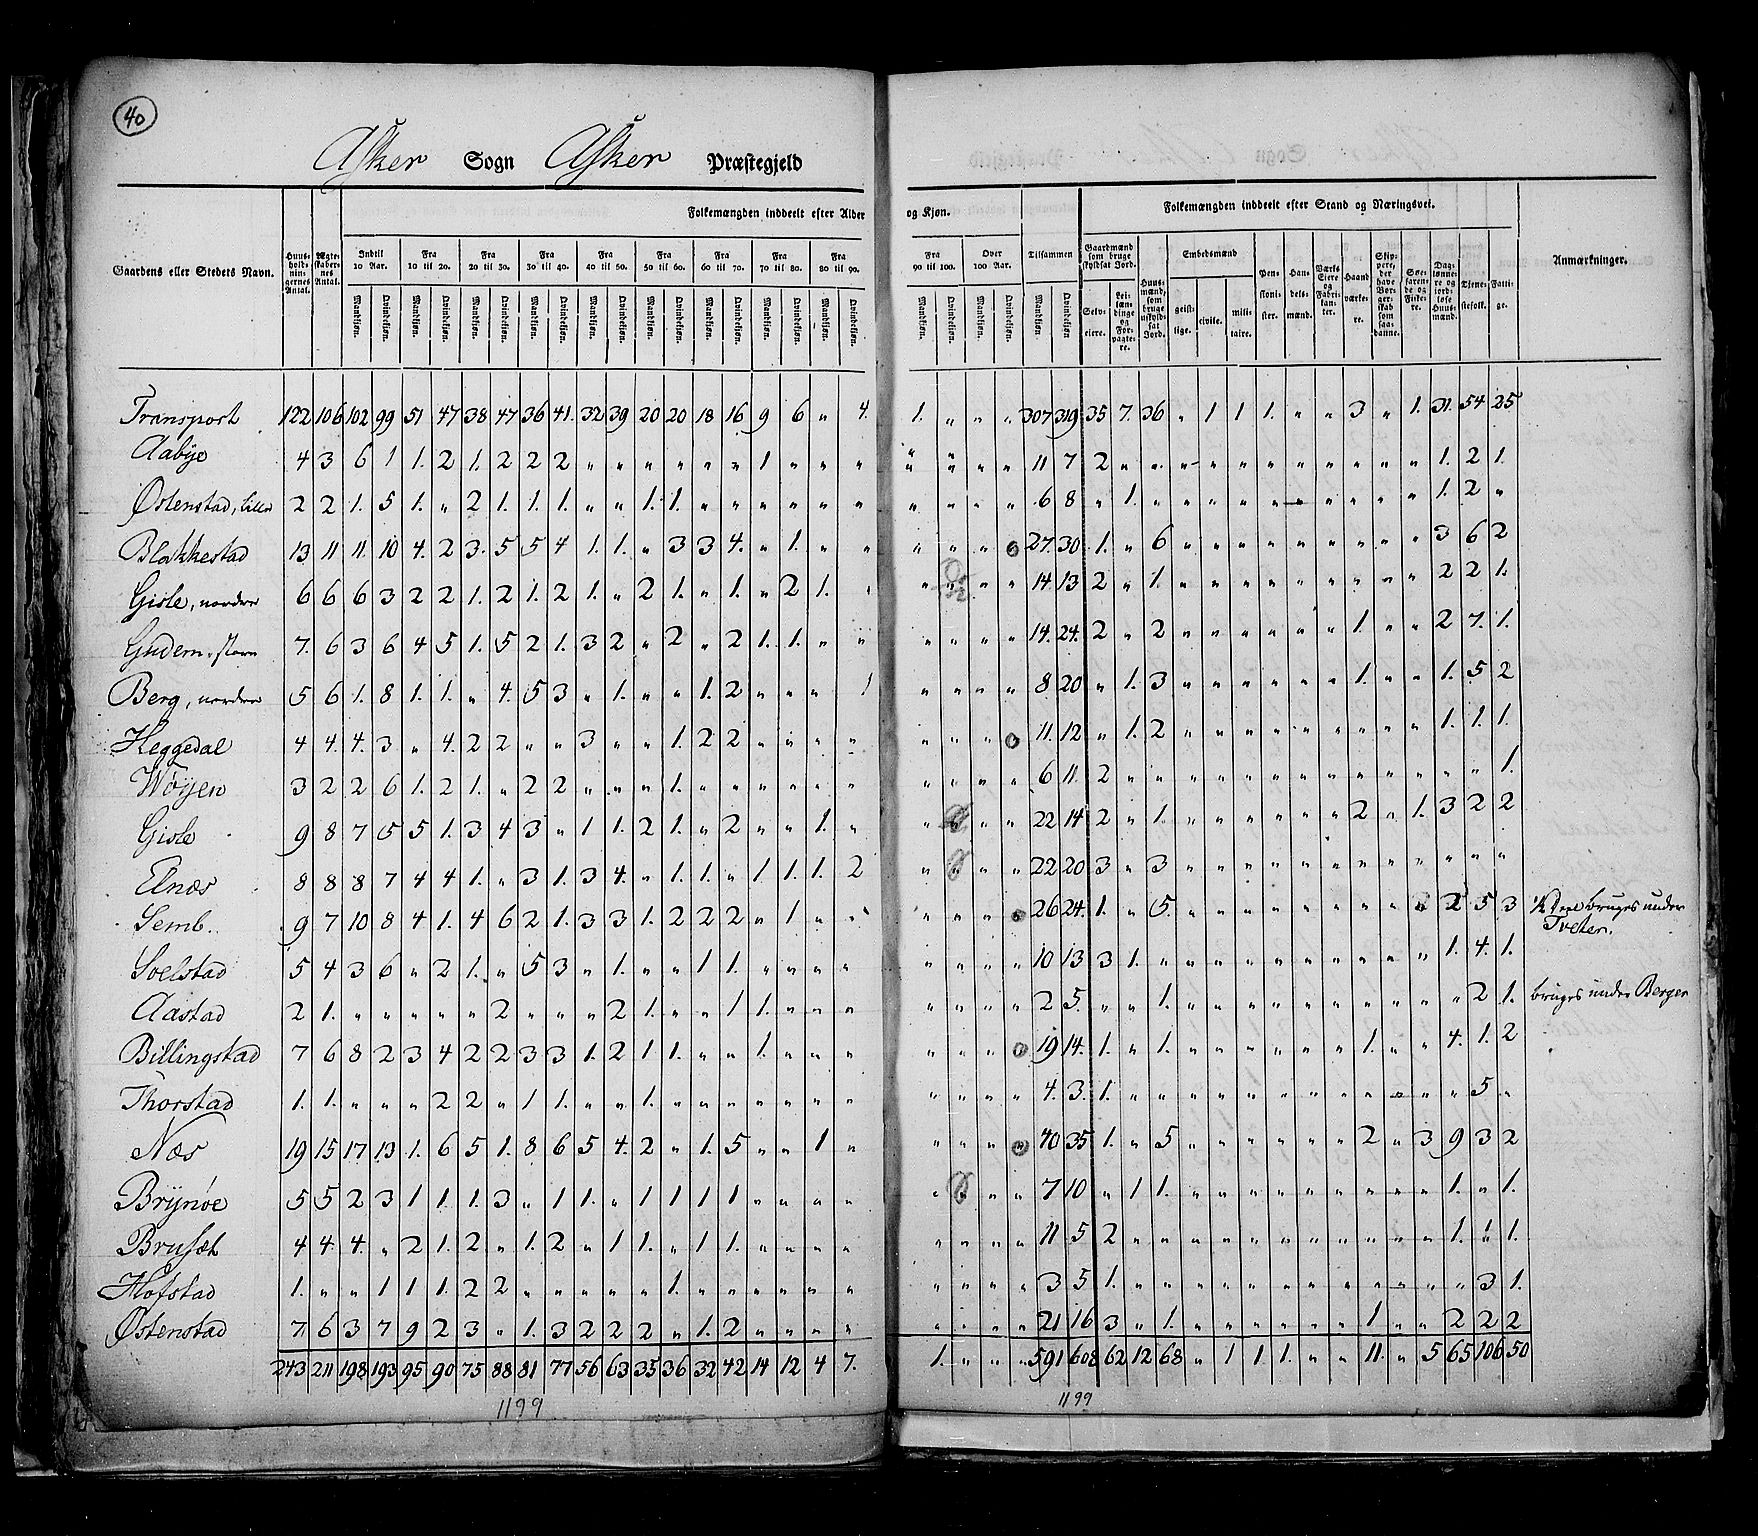 40
Asker Sogn Asker Præstegjeld
Gaardens eller Stedets Navn.
Huus-holdnin-gernes Antal.
Ægte-skaber-nes Antal.
Folkemængden inddeelt efter Alder og Kjøn.
Folkemængden inddeelt efter Stand og Næringsvei.
Anmærkninger.
Indtil 10 Aar. Fra 10 til 20. Fra 20 til 30. Fra 30 til 40. Fra 40 til 50. Fra 50 til 60. Fra 60 til 70. Fra 70 til 80. Fra 80 til 90. Fra 90 til 100. Over 100 Aar. Tilsammen
Mandkjøn. Qvindekjøn.
Gaardmænd som bruge skyldsat Jord. Selv-eiere. Lei-læn-dinge og For-pagte-re.
Huus-mænd, som bruge uskyld-sat Jord.
Embedsmænd geist-lige. civile. mili-taire.
Pen-sioni-ster. Han-dels-mænd. Værks Eiere og Fabri-kan-ter. Haand-værke-re. Skip-pere, der have Bor-ger-skab som saa-danne. Søe-faren-de og Fiske-re. Dag-lønne-re og jord-løse Huus-mænd. Tjene-stefolk. Fatti-ge.
Transport 122 106 102 99 51 47 38 47 36 41. 32 39 20 20 18 16 9 6 " 4. 1. " " " 307 319 35 7. 36 " 1 1 1. " " 3 " 1. 31. 54 25
Aabye 4 3 6 1 1. 2 1. 2 2 2 " " " " " " 1 " " " " " " " 11 7 2 " " " " " " " " " " " 1. 2 1.
Østenstad, lille 2 2 1. 5 1. " 2 1. 1. 1. " " 1. 1. " " " " " " " " " " 6 8 " 1. " " " " " " " " " " 1. 2 "
Blakkestad 13 11 11. 10 4. 2 3. 5 5 4 1. 1. " 3 3 4. " 1. " " " " " 0 27. 30 1. " 6 " " " " " " " " " 3 6 2
Gisle, nordre 6 6 6 3 2 2 1. 2 1. 2 1. " 2 1. " 1. " 2 1. " " " " " 14. 13 2 " 1. " " " " " " " " " 2 2 1.
Gudem, store 7. 6 3 6 4 5 1. 5 2 1. 3 2 " 2 " 2 1. 1. " " " " " " 14. 24. 2 " 2 " " " " " " 1. " " 2 7. 1.
Berg, nordre 5 6 1. 8 1. 1. " 4. 5 3 " 1. " " 1. 2 " " " 1 " " " " 8 20 " 1. 3 " " " " " " 1. " " 1. 5 2
Heggedal 4 4. 4. 3 " 4. 2 2 " " 3 " " 1. 2 2 " " " " " " " 0 11. 12 " 1. 2 " " " " " " " " " 1. 1. 1.
Wøyen 3 2 2 6 1. 2 1. " 2 2 " " " 1. " " " " " " " " " " 6 11. 2 " " " " " " " " " " " " " 1.
Gisle 9 8 7 5 5 1. 3 4 3 " 1 1. 2 1. " 2 " " 1. " " " " 22 14 2 " 1. " " " " " " 2 " 1. 3 2 2
Elnæs 8 8 8 7 4 4 1. " 3 1. 3 4. " 1. 1. " 1 1. 1. 2 " " " 22 20 3 " 3 " " " " " " " " " " " "
Semb. 9 7 10 8 4 1. 4 6 2 1. 3 3 1. 2 2 2 " 1. " " " " " 26 24. 1. " 5. " " " " " " " " 2 5 3 bruges under Tveter.
Soelstad 5 4. 3 6 " 2 1. " 5 3 " 1. " " 1 1. " " " " " " " " 10 13 3 1. " " " " " " " " " " 1. 4. 1.
Aastad 2 1. " " " " " 2 " " " 2 1. " " 1 1. " " " " " " " 2 5. " " 1. " " " " " " " " " " 2 1. bruges under Berger
Billingstad 7 6 8 2 3 4 2 2 3 3 1. 2 1 1. " " 1. " " " " " " 0 19 14. 1. " 1. " " " " " " 1. " " 4. 1. 2
Thorstad 1. 1. " " " 2 2 " 1 1. " " 1. " " " " " " " " " " " 4. 3. 1. " " " " " " " " " " " " 5 "
Næs 19 15 17 13 1. 6 5 1. 8 6 5 4. 2 " 1. 5 " " 1 " " " " 0 40 35 1. " 5 " " " " " " 2 " 3 9 3 2
Brynøe 5 5 2 3 1 1. 1. 3 " 1 1. " 1 1 1 1 " " " " " " " 7 10 " 1 1. " " " " " " " " " 1. " 1.
Brusæt 4 4. 4. " 2 1. 2 " 1. 2 " 1 1. " 1 1. " " " " " " " " 11. 5 2 " " " " " " " " " " " 1. 1.
Hofstad 1. " " 1 1 1. 2 2 " " " " " 1. " " " " " " " " " " 3 5 1. " " " " " " " " " " " " 3 1.
Østenstad 7. 6 3 7 9 2 3 " 1. 3 2 2 2 " 1. 2 " " " " " " " " 21 16 3 " 1. " " " " " " 1 " " 2 2 2
243 211 198 193 95 90 75 88 81 77 56 63 35 36 32 42 14 12 4 7. 1. " " " 591 608 62 12 68 " 1 1 1. " " 11. " 5 65 106 50
1199
1199